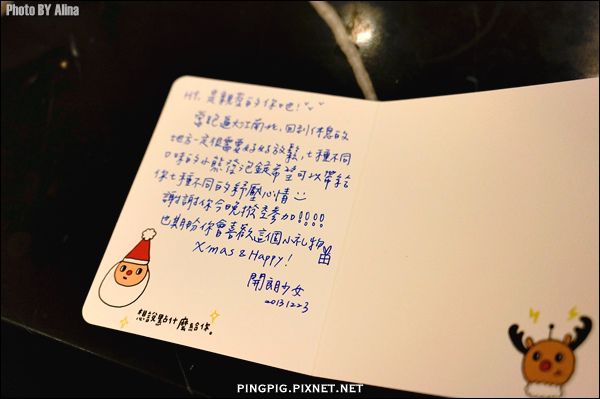 Photo BY Alina
Hi, 是親愛的你吧!
當跑遍大江南北,回到休息的
地方一定很需要好好放鬆,七種不同
口味的小熊發泡錠希望可以帶給
你七種不同的紓壓心情
謝謝你今晚撥空參加!!!!
也期盼你會喜歡這個小禮物
X'mas & Happy!
開朗少女
20131223
想說點什麼給你。
PINGPIG.PIXNET.NET